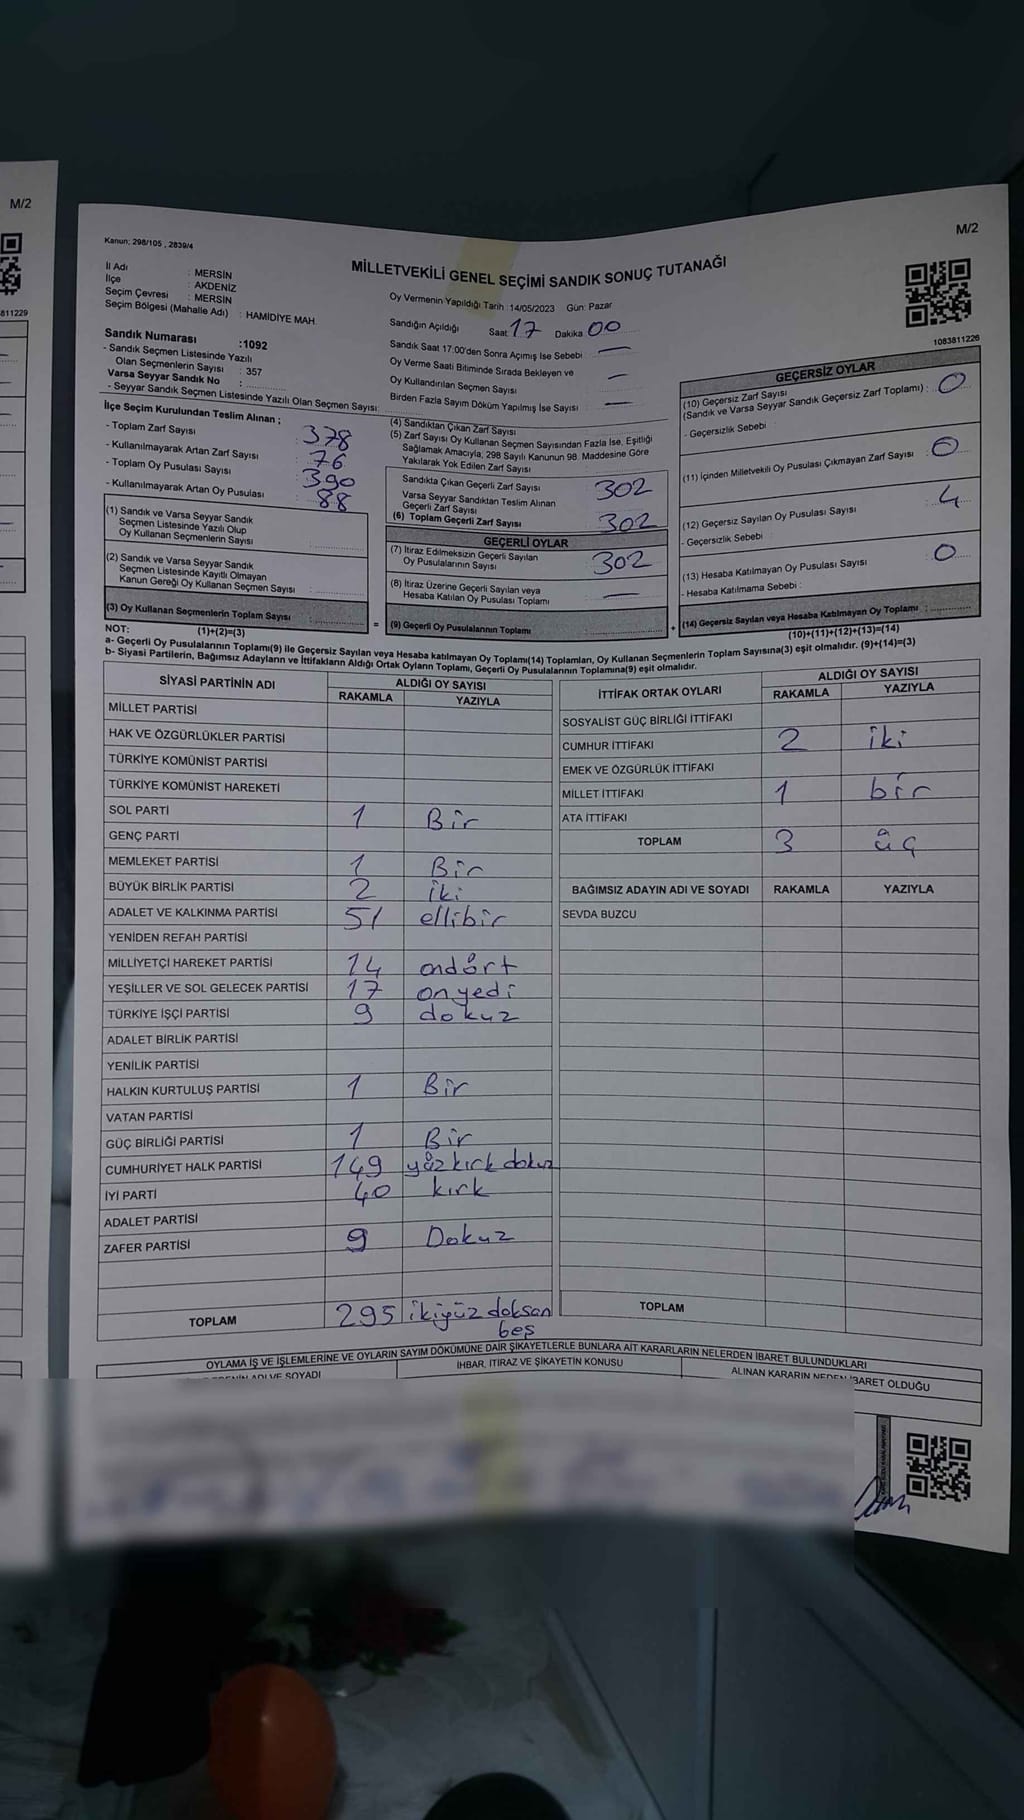 M/2
811229
M/2
Kanun: 298/105 , 2839/4
MİLLETVEKİLİ GENEL SEÇİMİ SANDIK SONUÇ TUTANAĞI
1083811226
İl Adı : MERSİN
İlçe : AKDENİZ
Seçim Çevresi : MERSİN
Seçim Bölgesi (Mahalle Adı) : HAMİDİYE MAH.
Sandık Numarası :1092
- Sandık Seçmen Listesinde Yazılı
Olan Seçmenlerin Sayısı : 357
Varsa Seyyar Sandık No :
- Seyyar Sandık Seçmen Listesinde Yazılı Olan Seçmen Sayısı:
İlçe Seçim Kurulundan Teslim Alınan ;
- Toplam Zarf Sayısı : 378
- Kullanılmayarak Artan Zarf Sayısı : 76
- Toplam Oy Pusulası Sayısı : 390
- Kullanılmayarak Artan Oy Pusulası : 88
(1) Sandık ve Varsa Seyyar Sandık
Seçmen Listesinde Yazılı Olup
Oy Kullanan Seçmenlerin Sayısı :
(2) Sandık ve Varsa Seyyar Sandık
Seçmen Listesinde Kayıtlı Olmayan
Kanun Gereği Oy Kullanan Seçmen Sayısı :
(3) Oy Kullanan Seçmenlerin Toplam Sayısı :
(1)+(2)=(3)
Oy Vermenin Yapıldığı Tarih : 14/05/2023 Gün: Pazar
Sandığın Açıldığı Saat 17 Dakika 00
Sandık Saat 17:00'den Sonra Açımış Ise Sebebi : —
Oy Verme Saati Bitiminde Sırada Bekleyen ve
Oy Kullandırılan Seçmen Sayısı : —
Birden Fazla Sayım Döküm Yapılmış İse Sayısı : —
(4) Sandıktan Çıkan Zarf Sayısı :
(5) Zarf Sayısı Oy Kullanan Seçmen Sayısından Fazla İse, Eşitliği
Sağlamak Amacıyla, 298 Sayılı Kanunun 98. Maddesine Göre
Yakılarak Yok Edilen Zarf Sayısı
Sandıkta Çıkan Geçerli Zarf Sayısı : 302
Varsa Seyyar Sandıktan Teslim Alınan
Geçerli Zarf Sayısı
(6) Toplam Geçerli Zarf Sayısı : 302
GEÇERLİ OYLAR
(7) İtiraz Edilmeksizin Geçerli Sayılan
Oy Pusulalarının Sayısı : 302
(8) İtiraz Üzerine Geçerli Sayılan veya
Hesaba Katılan Oy Pusulası Toplamı : —
= (9) Geçerli Oy Pusulalarının Toplamı :
GEÇERSİZ OYLAR
(10) Geçersiz Zarf Sayısı
(Sandık ve Varsa Seyyar Sandık Geçersiz Zarf Toplamı) : 0
- Geçersizlik Sebebi :
(11) İçinden Milletvekili Oy Pusulası Çıkmayan Zarf Sayısı : 0
(12) Geçersiz Sayılan Oy Pusulası Sayısı : 4
- Geçersizlik Sebebi :
(13) Hesaba Katılmayan Oy Pusulası Sayısı : 0
- Hesaba Katılmama Sebebi :
+ (14) Geçersiz Sayılan veya Hesaba Katılmayan Oy Toplamı :
(10)+(11)+(12)+(13)=(14)
NOT:
a- Geçerli Oy Pusulasının Toplamı(9) ile Geçersiz Sayılan veya Hesaba katılmayan Oy Toplamı(14) Toplamları, Oy Kullanan Seçmenlerin Toplam Sayısına(3) eşit olmalıdır. (9)+(14)=(3)
b- Siyasi Partilerin, Bağımsız Adayların ve İttifakların Aldığı Ortak Oyların Toplamı, Geçerli Oy Pusulalarının Toplamına(9) eşit olmalıdır.
SİYASİ PARTİNİN ADI ALDIĞI OY SAYISI
RAKAMLA YAZIYLA
MİLLET PARTİSİ
HAK VE ÖZGÜRLÜKLER PARTİSİ
TÜRKİYE KOMÜNİST PARTİSİ
TÜRKİYE KOMÜNİST HAREKETİ
SOL PARTİ 1 Bir
GENÇ PARTİ
MEMLEKET PARTİSİ 1 Bir
BÜYÜK BİRLİK PARTİSİ 2 iki
ADALET VE KALKINMA PARTİSİ 51 ellibir
YENİDEN REFAH PARTİSİ
MİLLİYETÇİ HAREKET PARTİSİ 14 ondört
YEŞİLLER VE SOL GELECEK PARTİSİ 17 onyedi
TÜRKİYE İŞÇİ PARTİSİ 9 dokuz
ADALET BİRLİK PARTİSİ
YENİLİK PARTİSİ
HALKIN KURTULUŞ PARTİSİ 1 Bir
VATAN PARTİSİ
GÜÇ BİRLİĞİ PARTİSİ 1 Bir
CUMHURİYET HALK PARTİSİ 149 yüzkırk dokuz
İYİ PARTİ 40 kırk
ADALET PARTİSİ
ZAFER PARTİSİ 9 Dokuz
TOPLAM 295 ikiyüz doksan
beş
İTTİFAK ORTAK OYLARI ALDIĞI OY SAYISI
RAKAMLA YAZIYLA
SOSYALİST GÜÇ BİRLİĞİ İTTİFAKI
CUMHUR İTTİFAKI 2 iki
EMEK VE ÖZGÜRLÜK İTTİFAKI
MİLLET İTTİFAKI 1 bir
ATA İTTİFAKI
TOPLAM 3 üç
BAĞIMSIZ ADAYIN ADI VE SOYADI RAKAMLA YAZIYLA
SEVDA BUZCU
TOPLAM
OYLAMA İŞ VE İŞLEMLERİNE VE OYLARIN SAYIM DÖKÜMÜNE DAİR ŞİKAYETLERLE BUNLARA AİT KARARLARIN NELERDEN İBARET BULUNDUKLARI
ADI VE SOYADI İHBAR, İTİRAZ VE ŞİKAYETİN KONUSU ALINAN KARARIN NEDEN İBARET OLDUĞU